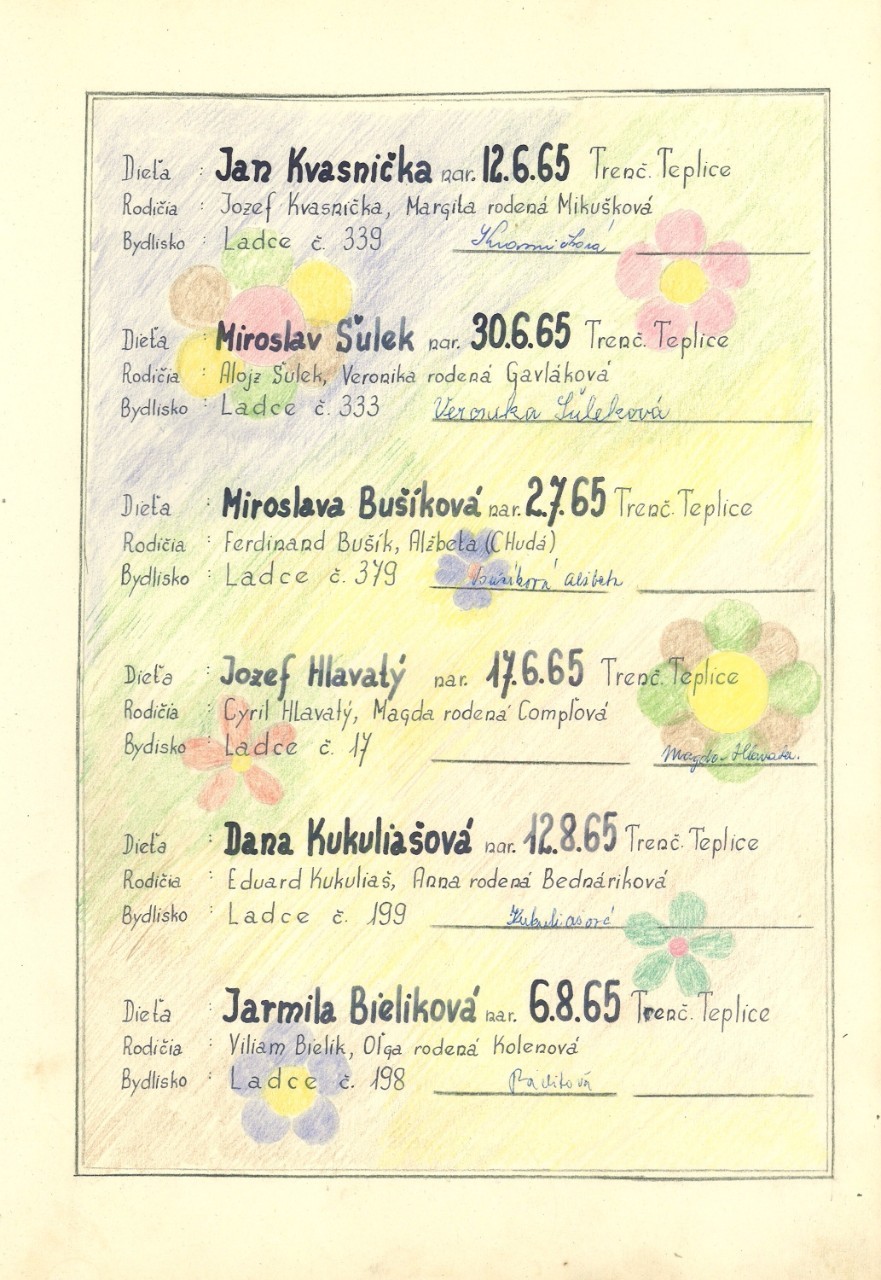 Dieťa : Jan Kvasnička nar. 12.6.65 Trenč. Teplice
Rodičia : Jozef Kvasnička, Margita rodená Mikušková
Bydlisko : Ladce č. 339 Kvasničková
Dieťa : Miroslav Šulek nar. 30.6.65 Trenč. Teplice
Rodičia : Alojz Šulek, Veronika rodená Gavláková
Bydlisko : Ladce č. 333 Veronika Šuleková
Dieťa : Miroslava Bušíková nar. 2.7.65 Trenč. Teplice
Rodičia : Ferdinand Bušík, Alžbeta (CHudá)
Bydlisko : Ladce č. 379 Bušíková Alžbeta
Dieťa : Jozef Hlavatý nar. 17.6.65 Trenč. Teplice
Rodičia : Cyril Hlavatý, Magda rodená Compľová
Bydisko : Ladce č. 17 Magda Hlavatá.
Dieťa : Dana Kukuliašová nar. 12.8.65 Trenč. Teplice
Rodičia : Eduard Kukuliaš, Anna rodená Bednáriková
Bydlisko : Ladce č. 199 Kukuliašová
Dieťa : Jarmila Bieliková nar. 6.8.65 Trenč. Teplice
Rodičia : Viliam Bielik, Oľga rodená Kolenová
Bydlisko : Ladce č. 198